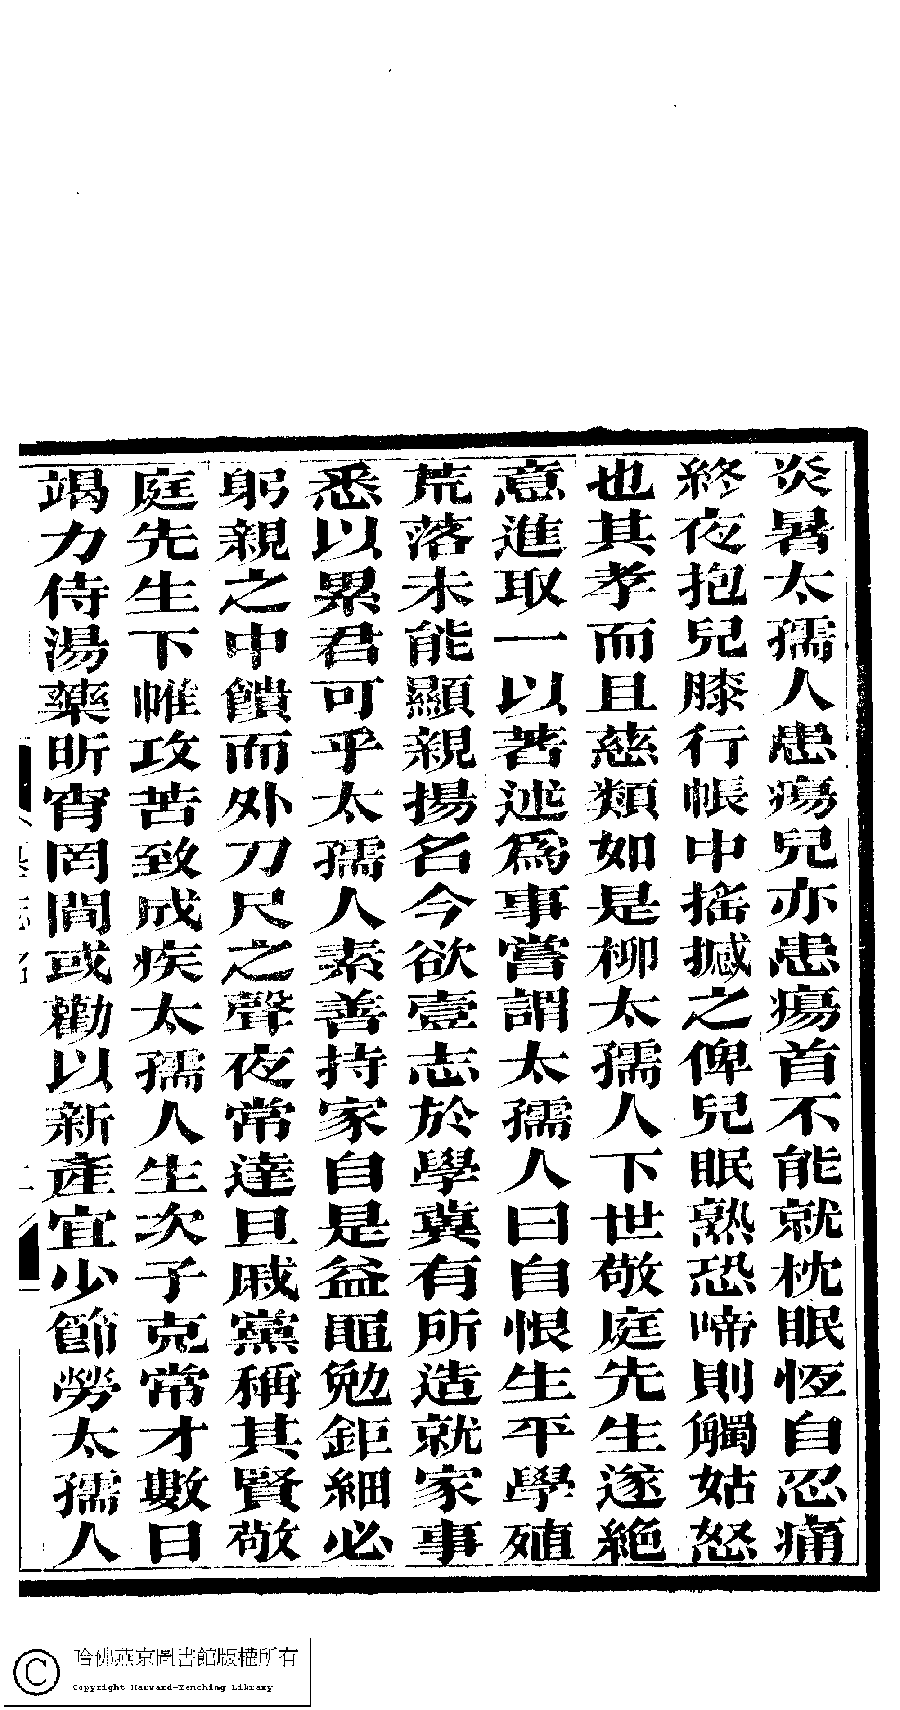 炎暑太孺人患瘍兒亦患瘍首不能就枕眠恆自忍痛
終夜抱兒膝行帳中搖撼之俾兒眠熟恐啼則觸姑怒
也其孝而且慈類如是柳太孺人下世敬庭先生遂絶
意進取一以著述爲事嘗謂太孺人曰自恨生平學殖
荒落未能顯親揚名今欲壹志於學冀有所造就家事
悉以累君可乎太孺人素善持家自是益黽勉鉅細必
躬親之中饋而外刀尺之聲夜常達旦戚黨稱其賢敬
庭先生下帷攻苦致成疾太孺人生次子克常才數日
竭力侍湯藥昕宵罔間或勸以新產宜少節勞太孺人
哈佛燕京圖書館版權所有
Copyright Harvard-Yenching Library